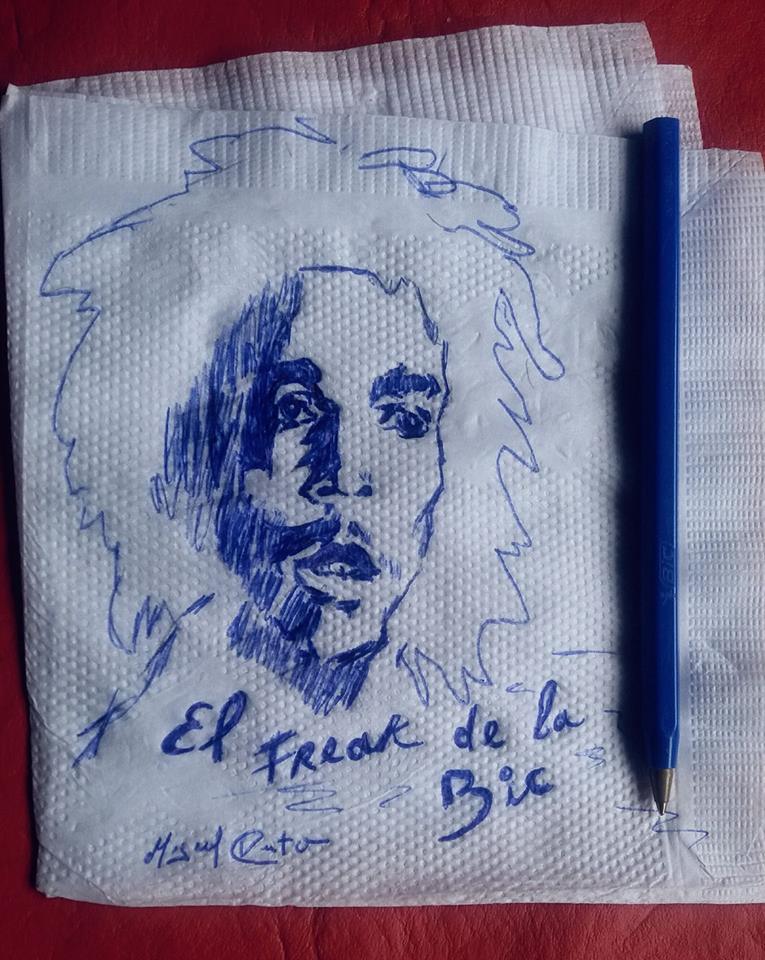 El Freak de la
Bic
Miguel
BIC